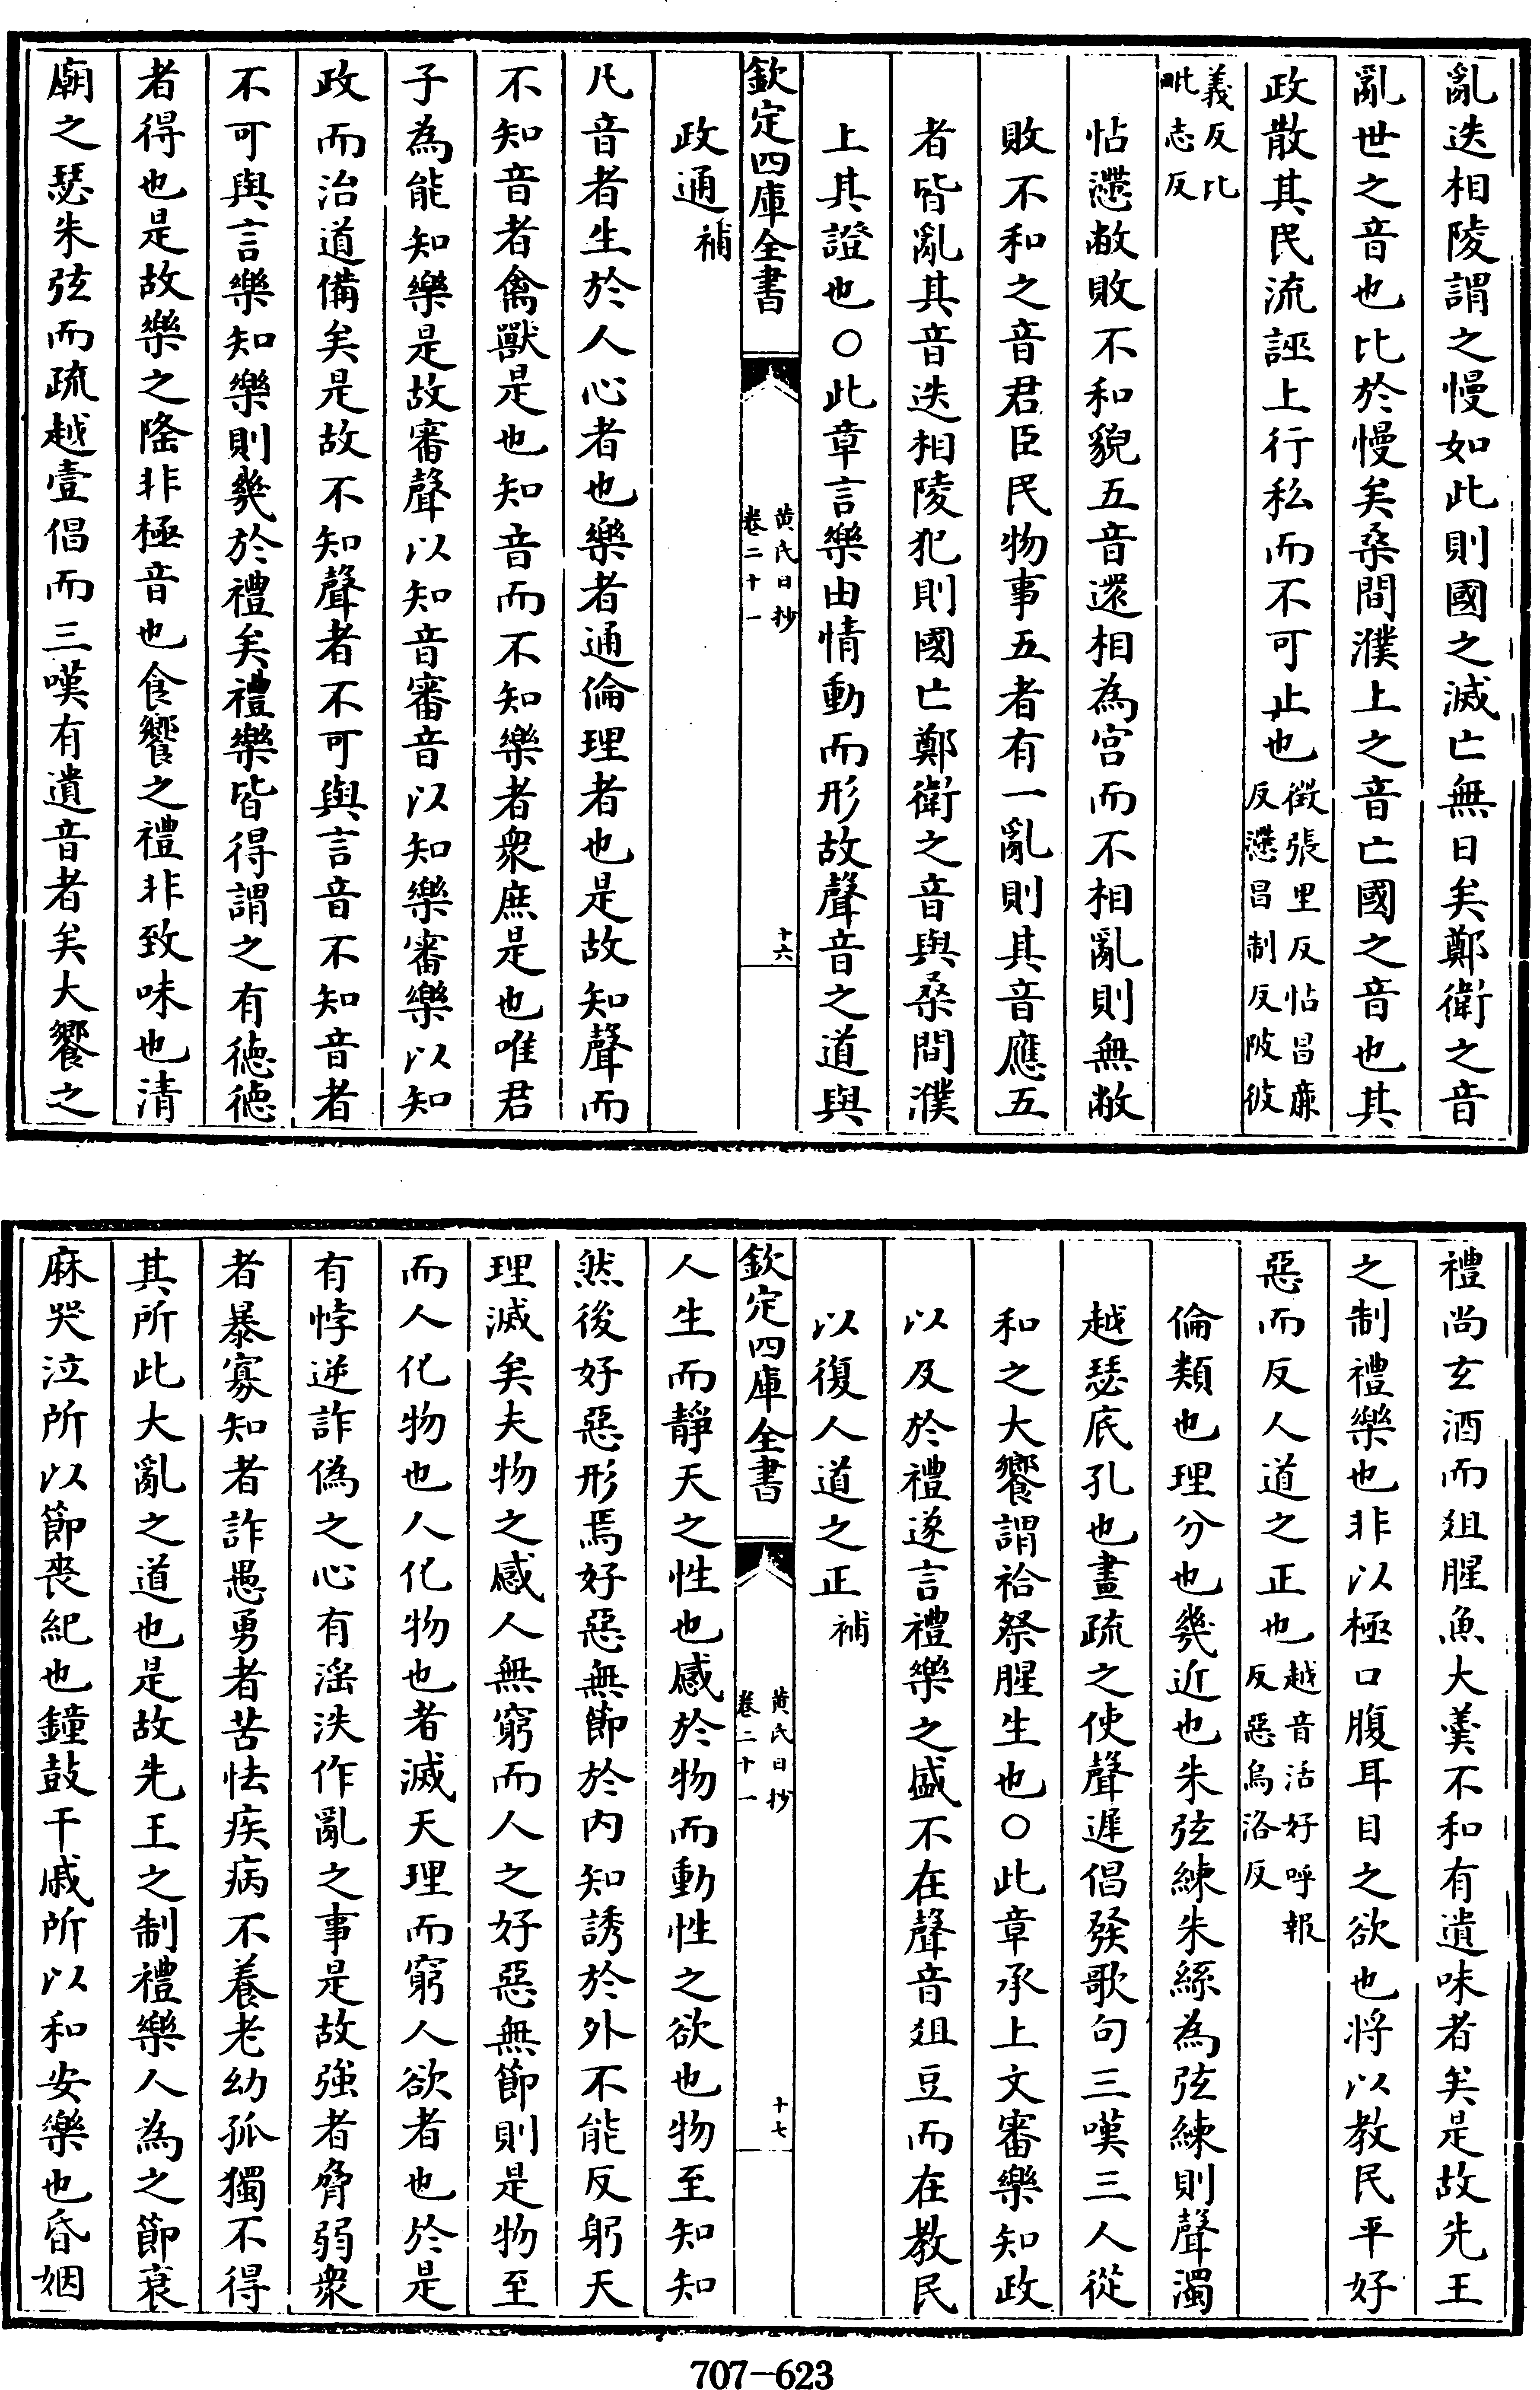 亂迭相陵謂之慢如此則國之滅亡無日矣鄭衛之音
亂世之音也比於慢矣桑間濮上之音亡國之音也其
政散其民流誣上行私而不可止也徵張里反怗昌廉反懘昌制反陂彼
義反比毗志反
怗懘敝敗不和貌五音還相為宫而不相亂則無敝
敗不和之音君臣民物事五者有一亂則其音應五
者皆亂其音迭相陵犯則國亡鄭衛之音與桑間濮
上其證也○此章言樂由情動而形故聲音之道與
欽定四庫全書
黄氏日抄
卷二十一
十六
政通補
凡音者生於人心者也樂者通倫理者也是故知聲而
不知音者禽獸是也知音而不知樂者衆庶是也唯君
子為能知樂是故審聲以知音審音以知樂審樂以知
政而治道備矣是故不知聲者不可與言音不知音者
不可與言樂知樂則幾於禮矣禮樂皆得謂之有徳徳
者得也是故樂之隆非極音也食饗之禮非致味也清
廟之瑟朱弦而疏越壹倡而三嘆有遺音者矣大饗之
禮尚玄酒而爼腥魚大羹不和有遺味者矣是故先王
之制禮樂也非以極口腹耳目之欲也将以教民平好
惡而反人道之正也越音活好呼報反惡烏洛反
倫類也理分也幾近也朱弦練朱絲為弦練則聲濁
越瑟底孔也畫疏之使聲遲倡發歌句三嘆三人從
和之大饗謂祫祭腥生也○此章承上文審樂知政
以及於禮遂言禮樂之盛不在聲音爼豆而在教民
以復人道之正補
欽定四庫全書
黄氏日抄
卷二十一
十七
人生而靜天之性也感於物而動性之欲也物至知知
然後好惡形焉好惡無節於内知誘於外不能反躬天
理滅矣夫物之感人無窮而人之好惡無節則是物至
而人化物也人化物也者滅天理而窮人欲者也於是
有悖逆詐偽之心有滛泆作亂之事是故強者脅弱衆
者暴寡知者詐愚勇者苦怯疾病不養老幼孤獨不得
其所此大亂之道也是故先王之制禮樂人為之節衰
麻哭泣所以節喪紀也鐘鼓干戚所以和安樂也昏姻
707-623